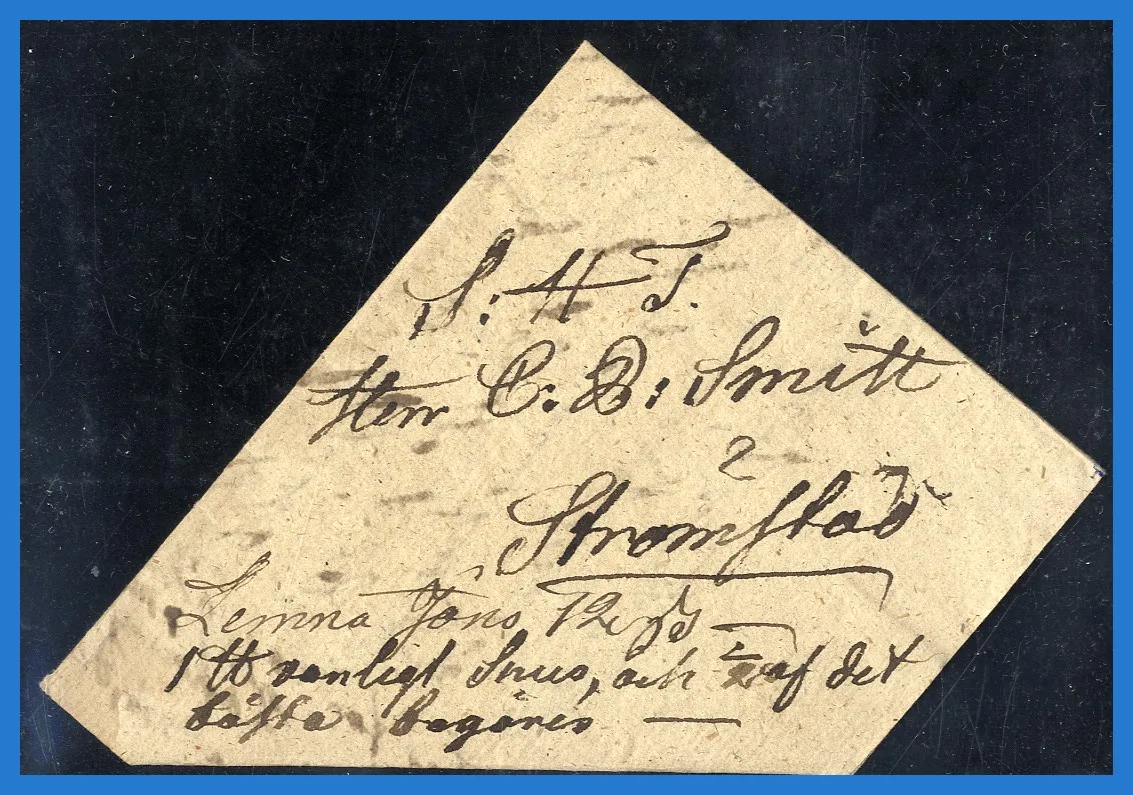 S: H T.
Herr C. B: Smitt
Strömstad
Lemna Jöns
1 ℔ vanligt Snus, och af det
bästa begäres —